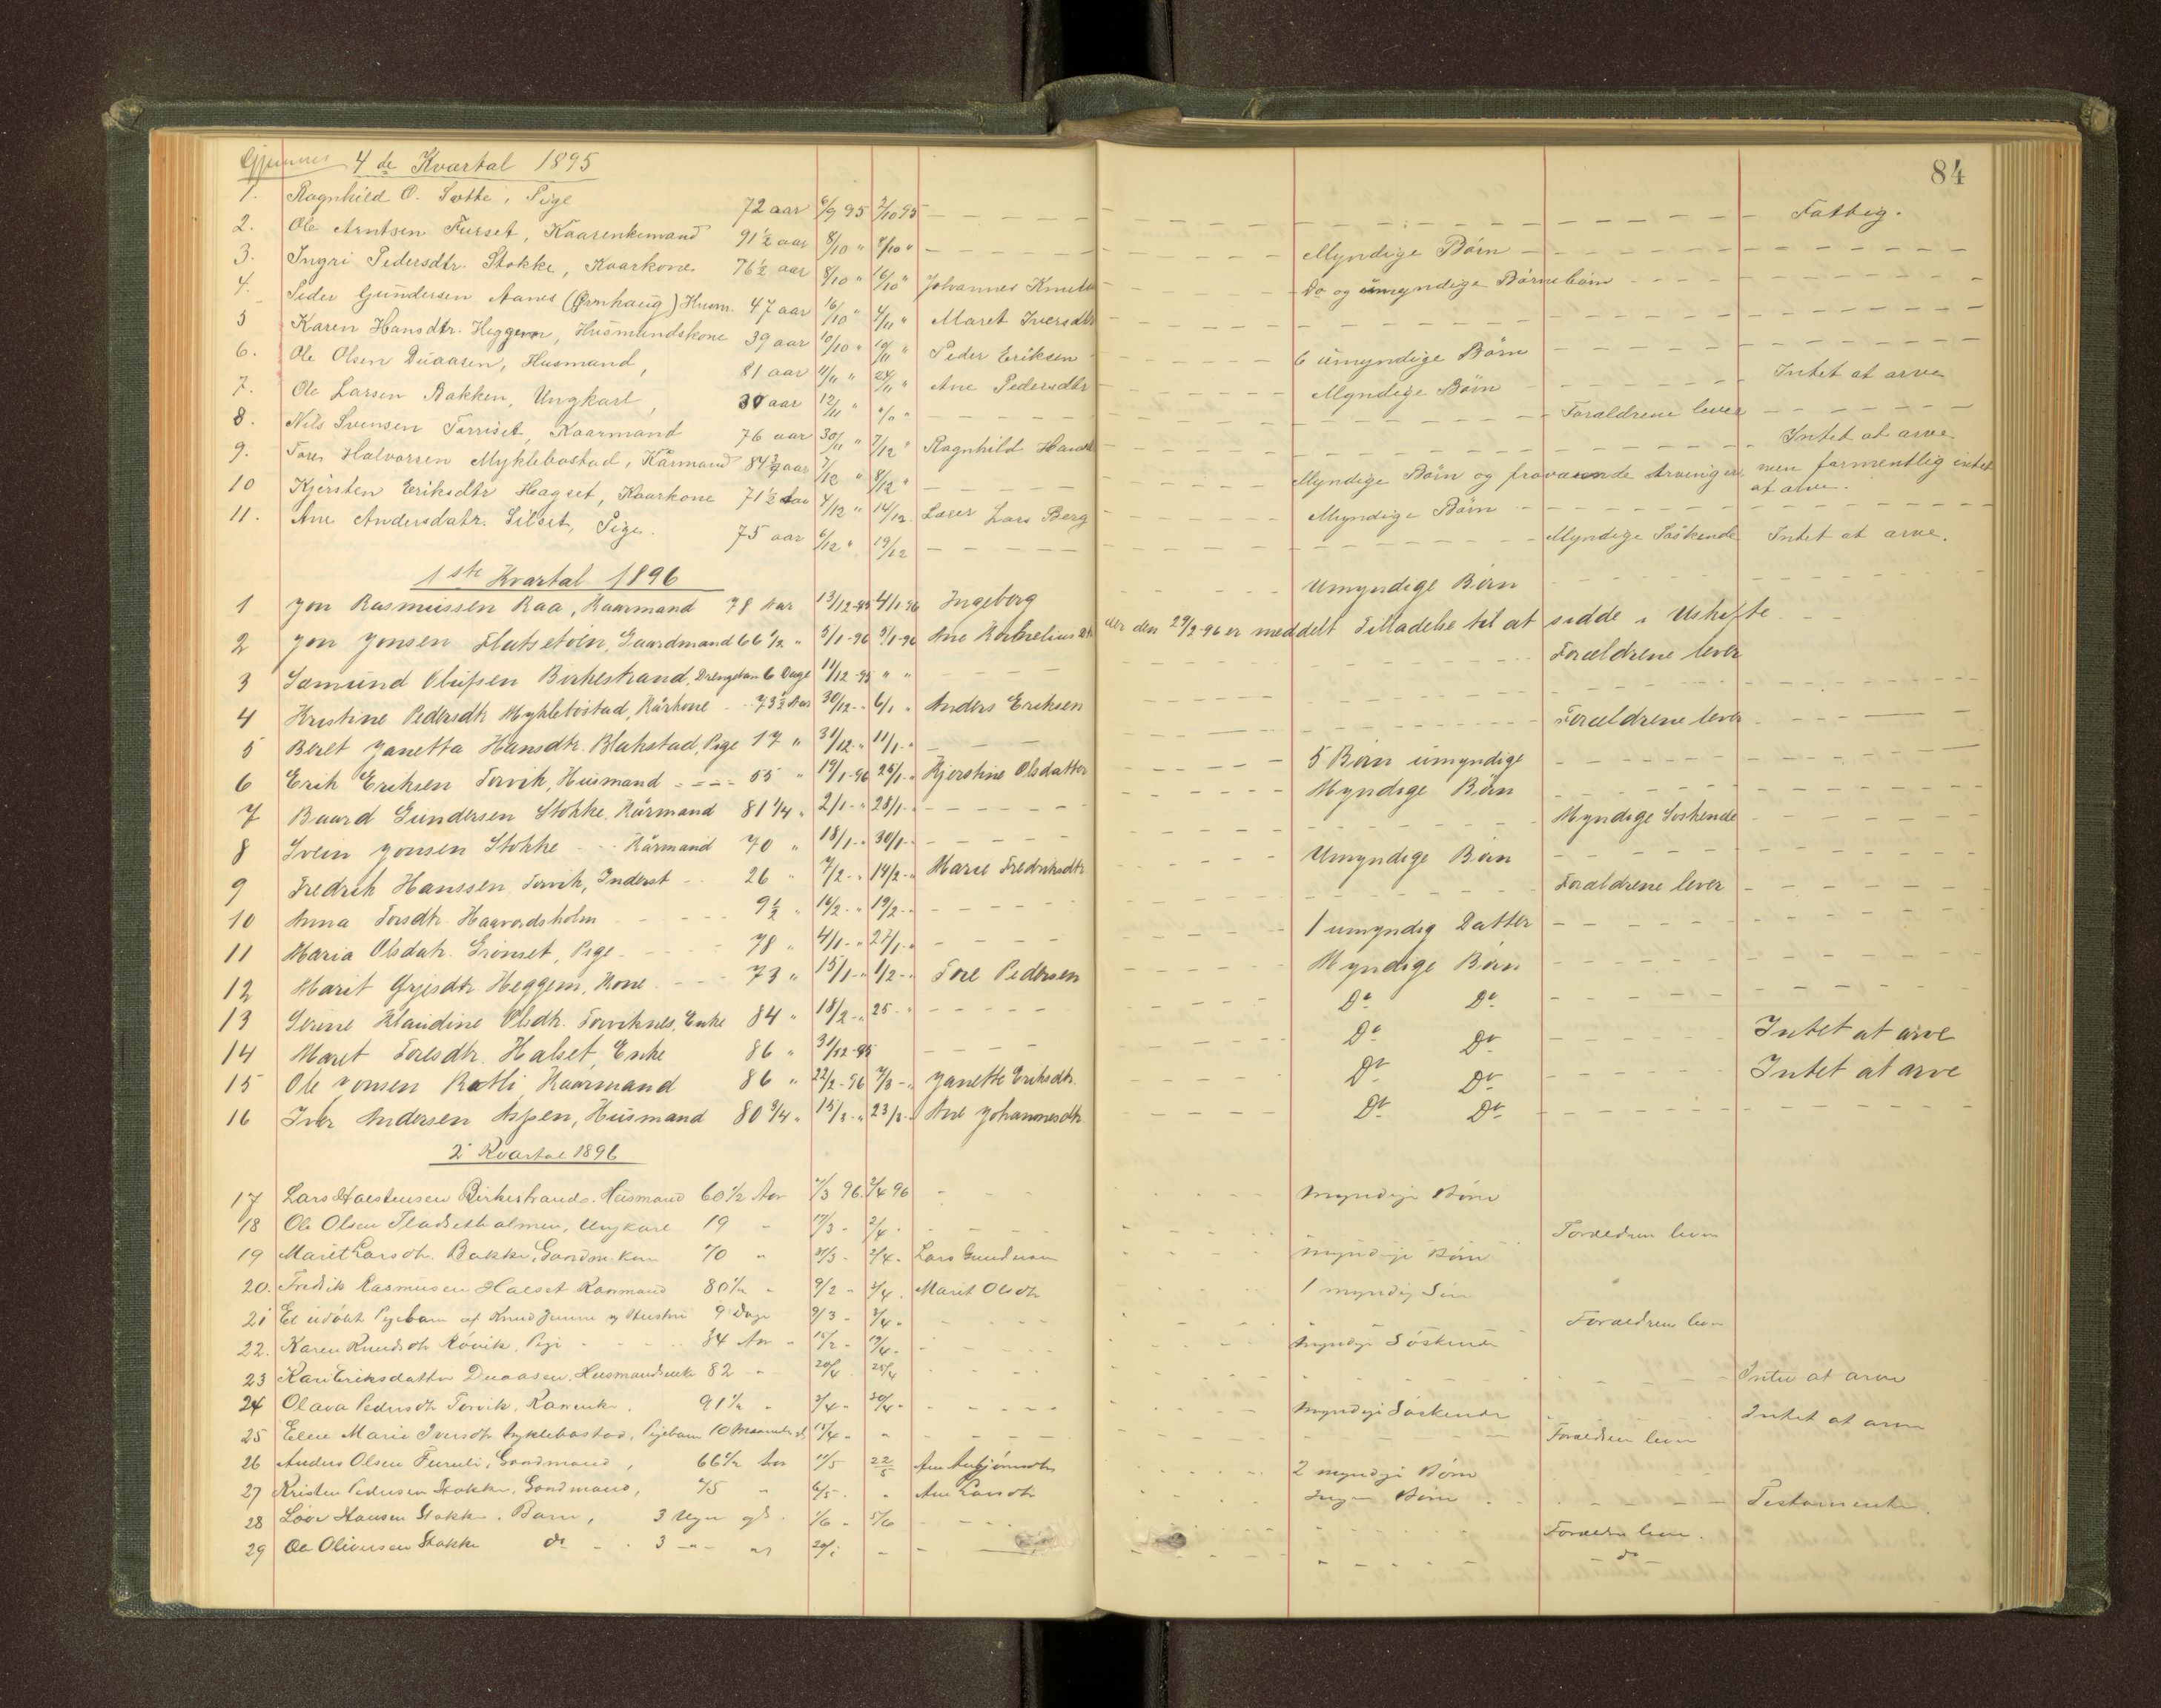 84
Gjemnes 4de Kvartal 1895
1. Ragnhild O. Sotte, Pige 72 aar 6/9 95 2/10 95 Fattig.
2. Ole Arntsen Furset, Kaarenkemand 91½ aar 8/10 " 9/10 " Myndige Børn
3. Ingri Pedersdtr. Stokke, Kaarkone 76½ aar 8/10 " 16/10 " Johannes Knuts Do og umyndige Børnebørn
4. Peder Gundersen Aanes (Ørnhaug) Husm. 47 aar 16/10 " 4/11 " Maret Iversdtr
5 Karen Hansdtr. Heggem, Husmandskone 39 aar 10/10 " 19/11 " Peder Eriksen 6 umyndige Børn
6. Ole Olsen Duaasen, Husmand, 81 aar 11/11 " 24/11 " Ane Pedersdtr Myndige Børn Intet at arve
7. Ole Larsen Bakken, Ungkarl, 30 aar 12/11 " "/" " Forældrene lever
8. Nils Svensen Torriset, Kaarmand 76 aar 30/11 " 7/12 " Ragnhild Hansd Intet at arve
9. Tores Halvorsen Myklebostad, Kårmand 84¾ aar 7/12 " 8/12 " Myndige Børn og fraværende Arvinger, men formentlig intet at arve.
10 Kjersten Eriksdtr Hagset, Kaarkone 71½ aar 4/12 " 14/12. Lærer Lars Berg Myndige Børn
11. Ane Andersdatr. Silset, Pige. 75 aar 6/12 " 19/12 Myndige Søskende Intet at arve.
1ste Kvartal 1896
1 Jon Rasmussen Raa, Kaarmand 78 Aar 13/12-95 4/1 96 Ingeborg Umyndige Børn
2 Jon Jonsen Flatsetøien, Gaardmand 66½ " 5/1-96 5/1-96 Ane Kornelius dtr der den 29/2-96 er meddelt Tilladelse til at sidde i Uskifte
3 Samund Olufsen Birkestrand, Drengebarn 6 Dage 11/12-95 " " Forældrene lever
4 Kristine Pedersdtr Myklebostad, Kårkone 73½ Aar 30/12- 6/1 " Anders Eriksen
5 Beret Janetta Hansdtr. Blakstad, Pige 17 " 31/12- " 11/1- " Forældrene lever
6 Erik Eriksen Torvik, Husmand 55 " 19/1-96 25/1- " Kjerstine Olsdatter 5 Børn umyndige
7 Baard Gundersen Stokke, Kårmand 81¼ " 2/1- " 28/1- Myndige Børn
8 Svein Jonsen Stokke Kårmand 70 " 18/1- " 30/1- Myndige Søskende
9 Fredrik Hanssen Torvik, Inderst 26 " 7/2- " 14/2- " Marie Fredriksdtr. Umyndige Børn
10 Anna Torsdtr. Haavordsholm 9½ " 16/2- " 19/2- " Forældrene lever
11 Maria Olsdatr. Grønset, Pige 78 " 4/1- " 27/1- " 1 umyndig Datter
12 Marit Gjøsdtr. Heggem, Kone 73 " 15/1- " 1/2- " Tore Pedersen Myndige Børn
13 Serine Klaudine Olsdtr. Torviknes, Enke 84 " 18/2- " 25- " Do Do
14 Maret Toresdtr. Halset, Enke 86 " 31/12-95 Do Do Intet at arve
15 Ole Jonsen Rotli Kaarmand 86 " 22/2-96 7/3- " Janette Eriksdtr. Do Do Intet at arve
16 Iver Andersen Aspen, Husmand 80¾ " 15/3- " 23/3- " Ane Johannesdtr. Do Do
2 Kvartal 1896
17 Lars Halstensen Birkestrand. Husmand 60½ Aar 96. 2/4 96 Myndige Børn
18 Ole Olsen Fladsetholmen, Ungkarl 19 " 17/3 - 2/4 - Forældren leve
19 Marit Larsdtr. Bakke, Gaardm. kone 70 " 31/3 - 2/4 - Lars Gundersen Myndige Børn
20. Fredrik Rasmusen Halset Kaarmand 80½ " 9/2 - 2/4. Marit Olsdtr 1 myndig Søn
21 Et udøbt Pigebarn af Knud og Hustru 9 Dage 9/3 - 3/4 - Forældren leve
22. Karen Knudsdtr Røvik, Pige 84 Aar - 15/2 - 19/4 - Myndige Søskende
23 Kari Eriksdatter Duaasen, Husmandsenke 82 " 20/4 25/4 Intet at arve
24 Olava Pedersdtr Torvik, Kaarenke. 91½ " 3/4 - 30/4 - Myndige Søskende Intet at arve
25 Elen Marie Iversdtr Myklebostad, Pigebarn 10 Maaneder 15/4 - " Forældren leve
26 Anders Olsen Furuli, Gaardmand, 66½ Aar 11/5 22/5 Ane 2 myndige Børn
27 Kristen Pedersen Stokke, Gaardmand, 75 " 6/5 - " Ane Larsdtr Ingen Børn Testamente
28 Hansen Stokke. Barn, 3 Uger gl. 1/6 - 5/6 Forældre leve.
29 Ole Oliversen Stokke do 3 - " - do